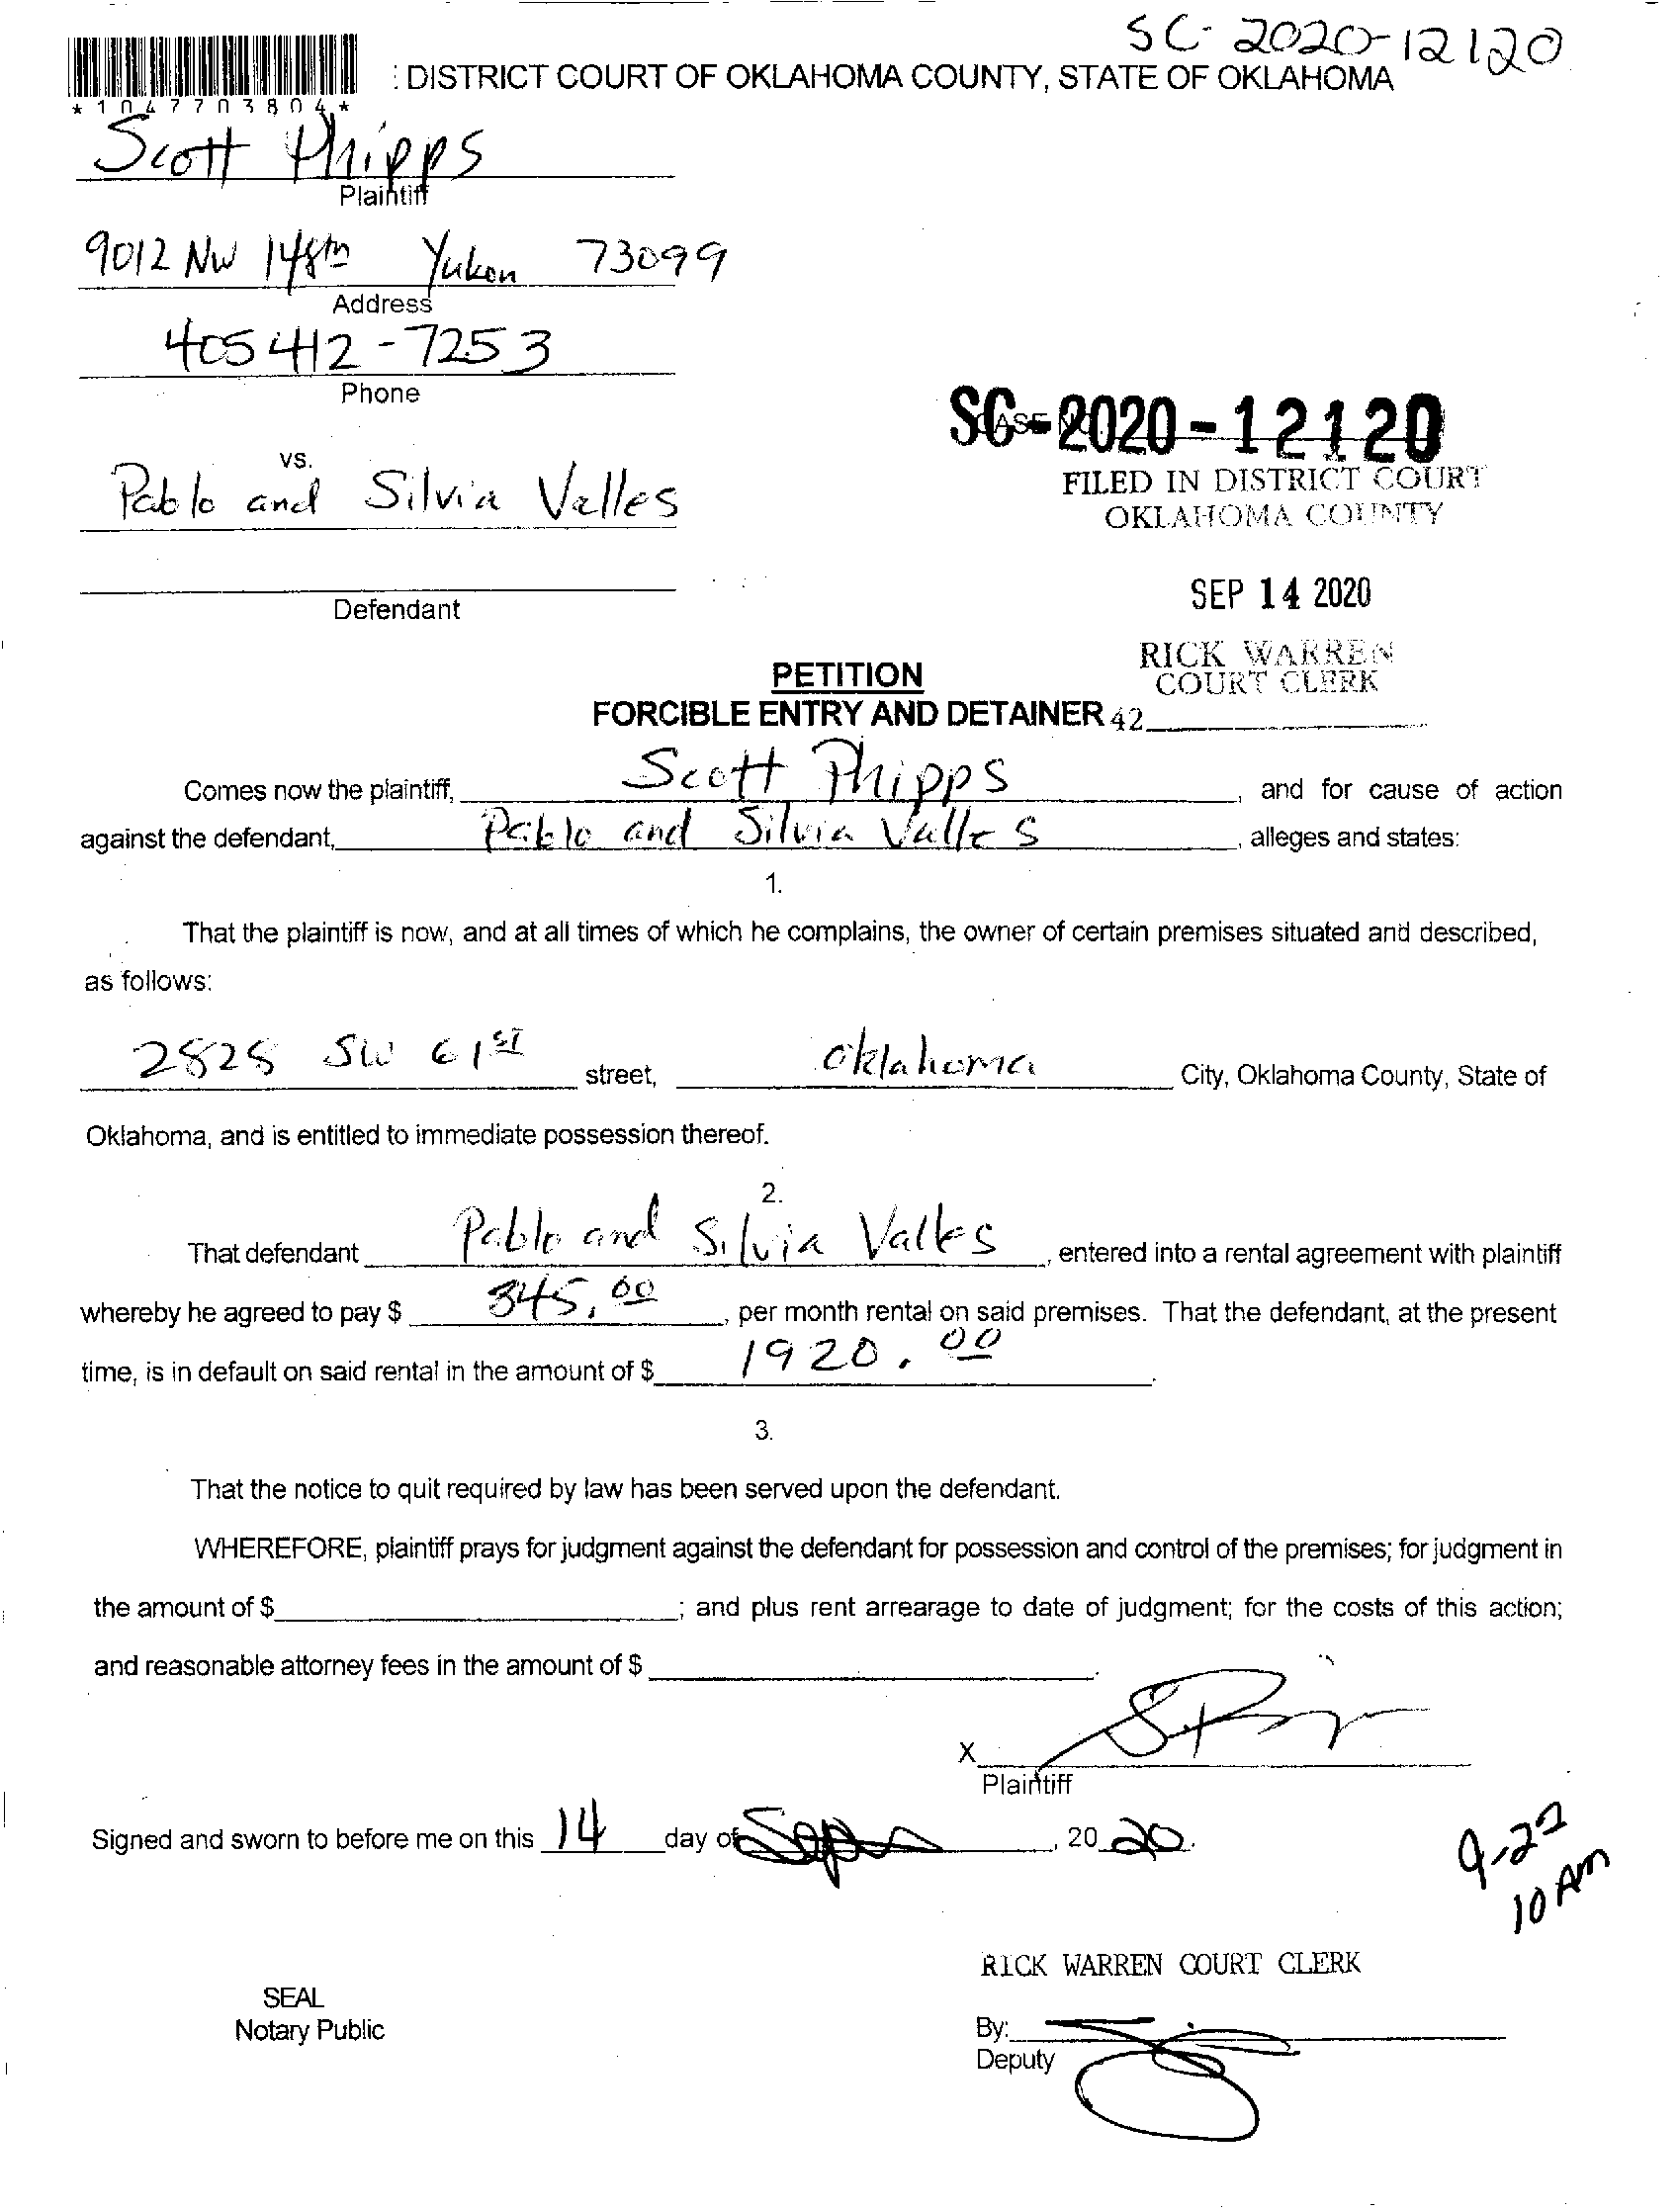 SC-2020-12120
: DISTRICT COURT OF OKLAHOMA COUNTY, STATE OF OKLAHOMA
* 1 0 4 7 7 0 3 8 0 4 *
Scott Phipps
Plaintiff
9012 NW 148th Yukon 73099
Address
405 412-7253
Phone
SC-2020-12120
vs.
Pablo and Silvia Valles
FILED IN DISTRICT COURT
OKLAHOMA COUNTY
SEP 14 2020
Defendant
RICK WARREN
COURT CLERK
PETITION
FORCIBLE ENTRY AND DETAINER 42
Comes now the plaintiff, Scott Phipps, and for cause of action
against the defendant, Pablo and Silvia Valles, alleges and states:
1.
That the plaintiff is now, and at all times of which he complains, the owner of certain premises situated and described,
as follows:
2828 SW 61st street, Oklahoma City, Oklahoma County, State of
Oklahoma, and is entitled to immediate possession thereof.
2.
That defendant Pablo and Silvia Valles, entered into a rental agreement with plaintiff
whereby he agreed to pay $ 845.00, per month rental on said premises. That the defendant, at the present
time, is in default on said rental in the amount of $ 1920.00.
3.
That the notice to quit required by law has been served upon the defendant.
WHEREFORE, plaintiff prays for judgment against the defendant for possession and control of the premises; for judgment in
the amount of $ ; and plus rent arrearage to date of judgment; for the costs of this action;
and reasonable attorney fees in the amount of $ .
X
Plaintiff
Signed and sworn to before me on this 14 day of Sep, 2020.
9-22
10 AM
RICK WARREN COURT CLERK
SEAL
Notary Public
By:
Deputy